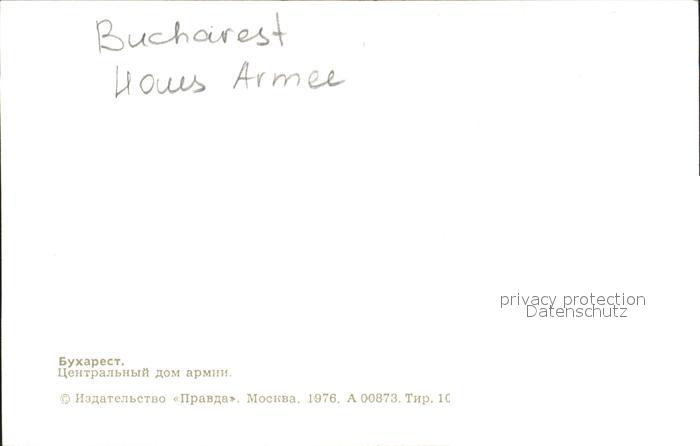 Bucharest
Haus Armee
privacy protection
Datenschutz
Бухарест.
Центральный дом армии.
© Издательство «Правда». Москва. 1976. А 00873. Тир. 10